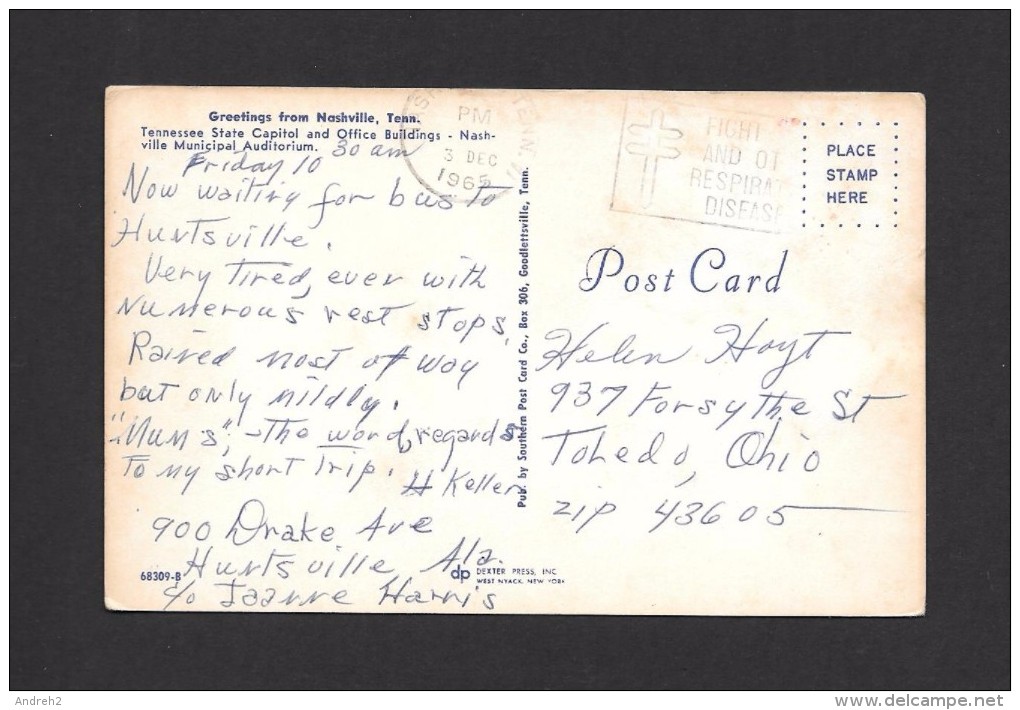 Greetings from Nashville, Tenn.
Tennessee State Capitol and Office Buildings - Nash-
ville Municipal Auditorium.
Friday 10 30 am
Now waiting for bus to
Huntsville.
Very tired, ever with
numerous rest stops.
Rained most of way
but only mildly.
"Mum's", - the word, regards
to my short trip.
H Keller
900 Drake Ave
Huntsville Ala.
c/o Joanne Harris
68309-B
Pub. by Southern Post Card Co., Box 306, Goodlettsville, Tenn.
dp DEXTER PRESS, INC.
WEST NYACK, NEW YORK
TENN.
PM
3 DEC
1965
FIGHT
AND OT
RESPIRAT
DISEASE
PLACE
STAMP
HERE
Post Card
Helen Hoyt
937 Forsythe St
Toledo, Ohio
zip 43605
Andreh2
delcampe.net